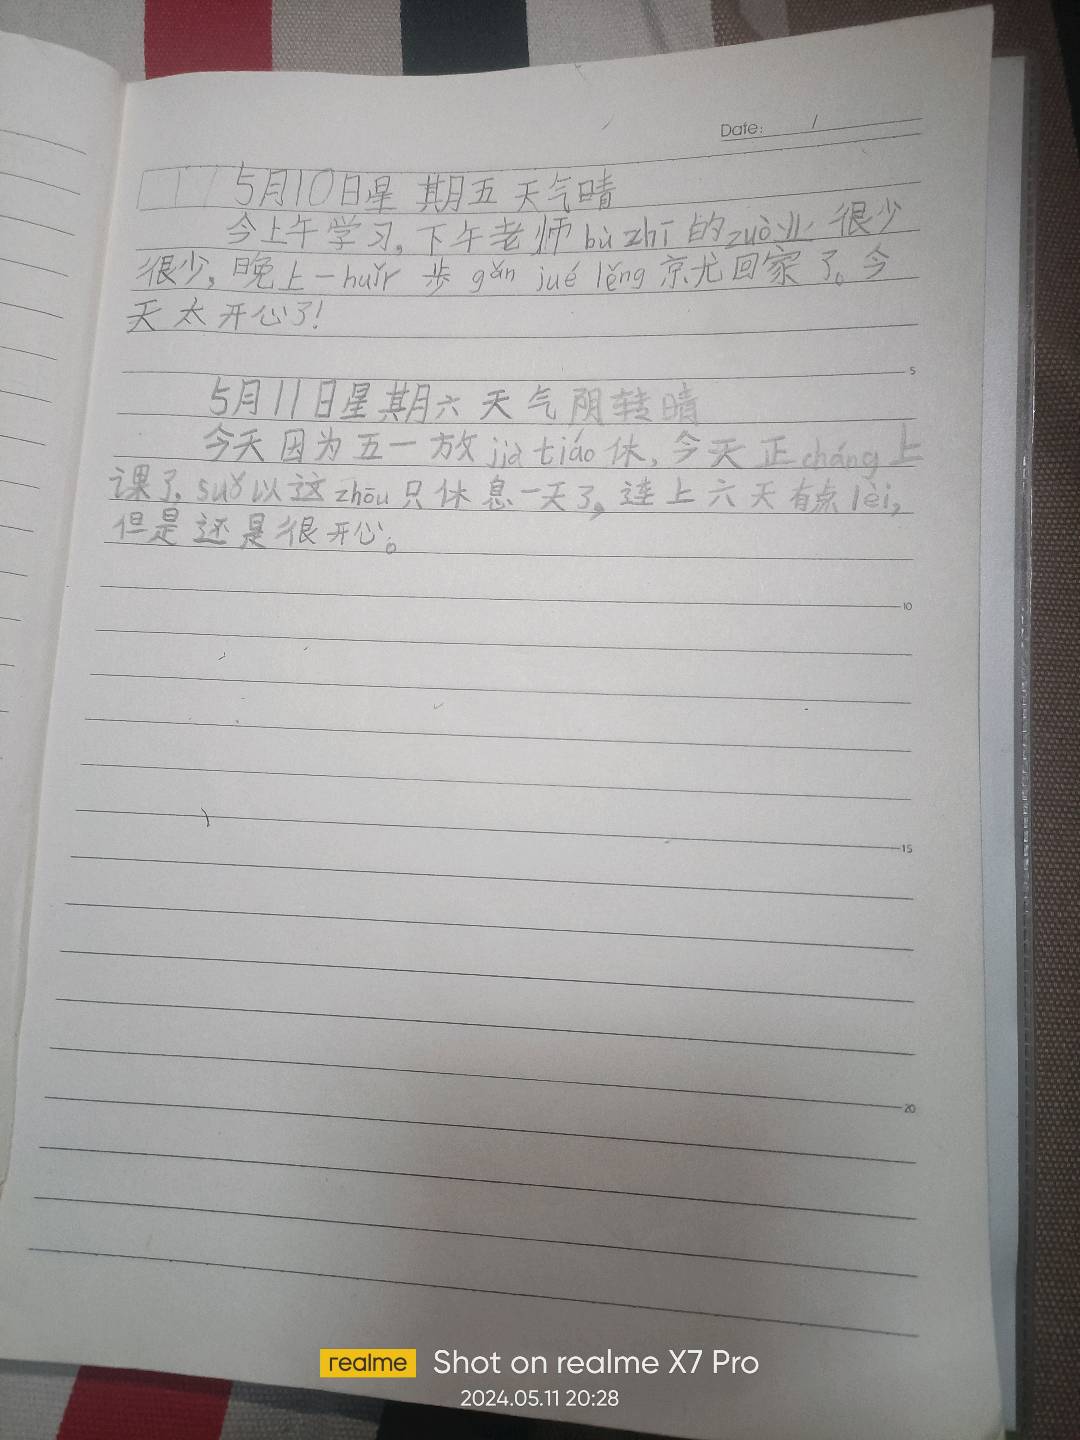 Date: /
5月10日星期五天气晴
今上午学习,下午老师bù zhī的zuò业很少
很少,晚上一huǐr步gǎn jué lěng京尤回家了。今
天太开心了!
5
5月11日星期六天气阴转晴
今天因为五一放jià tiáo休,今天正cháng上
课了,suǒ以这zhōu只休息一天了,连上六天有点lèi,
但是还是很开心。
10
15
20
realme Shot on realme X7 Pro
2024.05.11 20:28